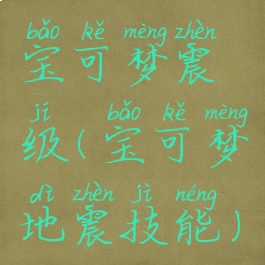 bǎo kě mèng zhèn
宝可梦震
jí bǎo kě mèng
级(宝可梦
dì zhèn jì néng
地震技能)